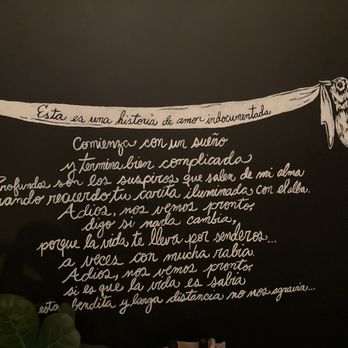 Esta es una historia de amor indocumentada
Comienza con un sueño
y termina bien complicada
Profundos son los suspiros que salen de mi alma
cuando recuerdo tu carita iluminada con el alba.
Adios, nos vemos pronto,
digo si nada cambia,
porque la vida te lleva por senderos...
a veces con mucha rabia
Adios, nos vemos pronto,
si es que la vida es sabia
esta bendita y larga distancia no nos agravia...